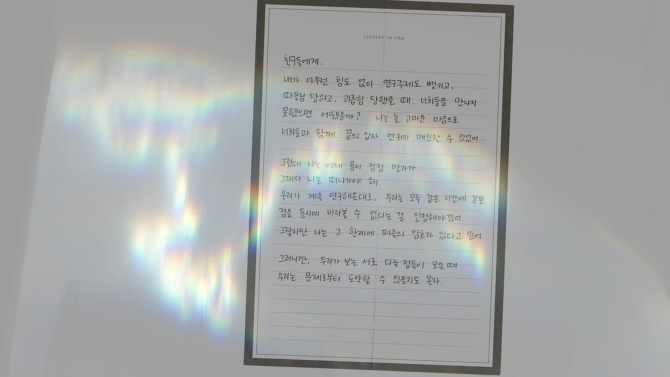 LETTERS TO YOU
친구들에게.
내가 아무런 힘도 없이 연구주제도 뺏기고,
따돌림 당하고, 괴롭힘 당했을 때 너희들을 만나지
못했으면 어땠을까? 나는 늘 고마운 마음으로
너희들과 함께 물의 입자 연구에 매진할 수 있었어...
그런데 나는 이제 몸이 점점 안좋아
그래서 나는 떠나가야 해.
우리가 계속 연구해온대로, 우리는 모두 같은 시간에 같은
점을 동시에 바라볼 수 없다는 걸 인정해야겠어.
그렇지만 나는 그 한계에 퍼즐의 암호가 있다고 믿어
그러니깐, 우리가 보는 서로 다른 점들이 모일 때
우리는 문제로부터 도약할 수 있을지도 몰라.